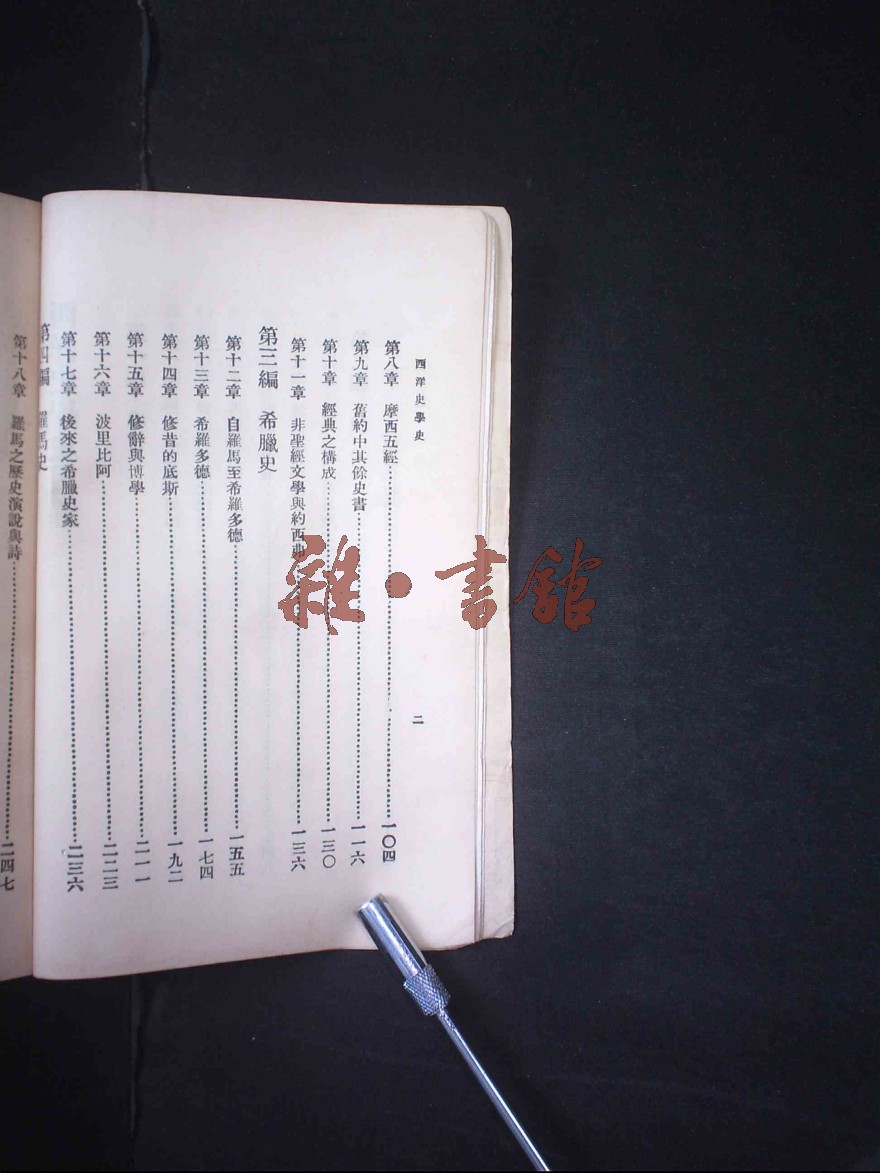 西洋史學史
二
第八章 摩西五經 一〇四
第九章 舊約中其餘史書 一一六
第十章 經典之構成 一三〇
第十一章 非聖經文學與約西弗 一三六
第三編 希臘史
第十二章 自羅馬至希羅多德 一五五
第十三章 希羅多德 一七四
第十四章 修昔的底斯 一九二
第十五章 修辭與博學 二一一
第十六章 波里比阿 二二三
第十七章 後來之希臘史家 二三六
第四編 羅馬史
第十八章 羅馬之歷史演說與詩 二四七
雜·書館